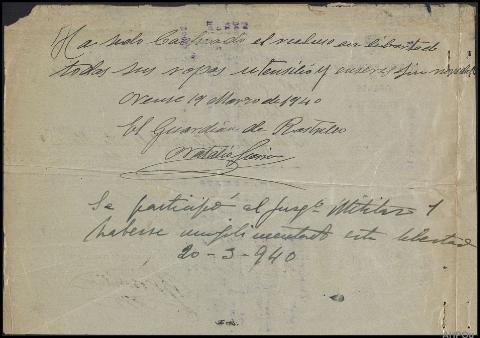 Ha sido el recluso en libertad
todas sus ropas utensilio y enseres sin novedad
Orense 19 Marzo de 1940
El Guardian de Rastrillo
Se participó al Juzg.º Militar 1
haberse cumplimentado esta libertad
20-3-940
AHPOu